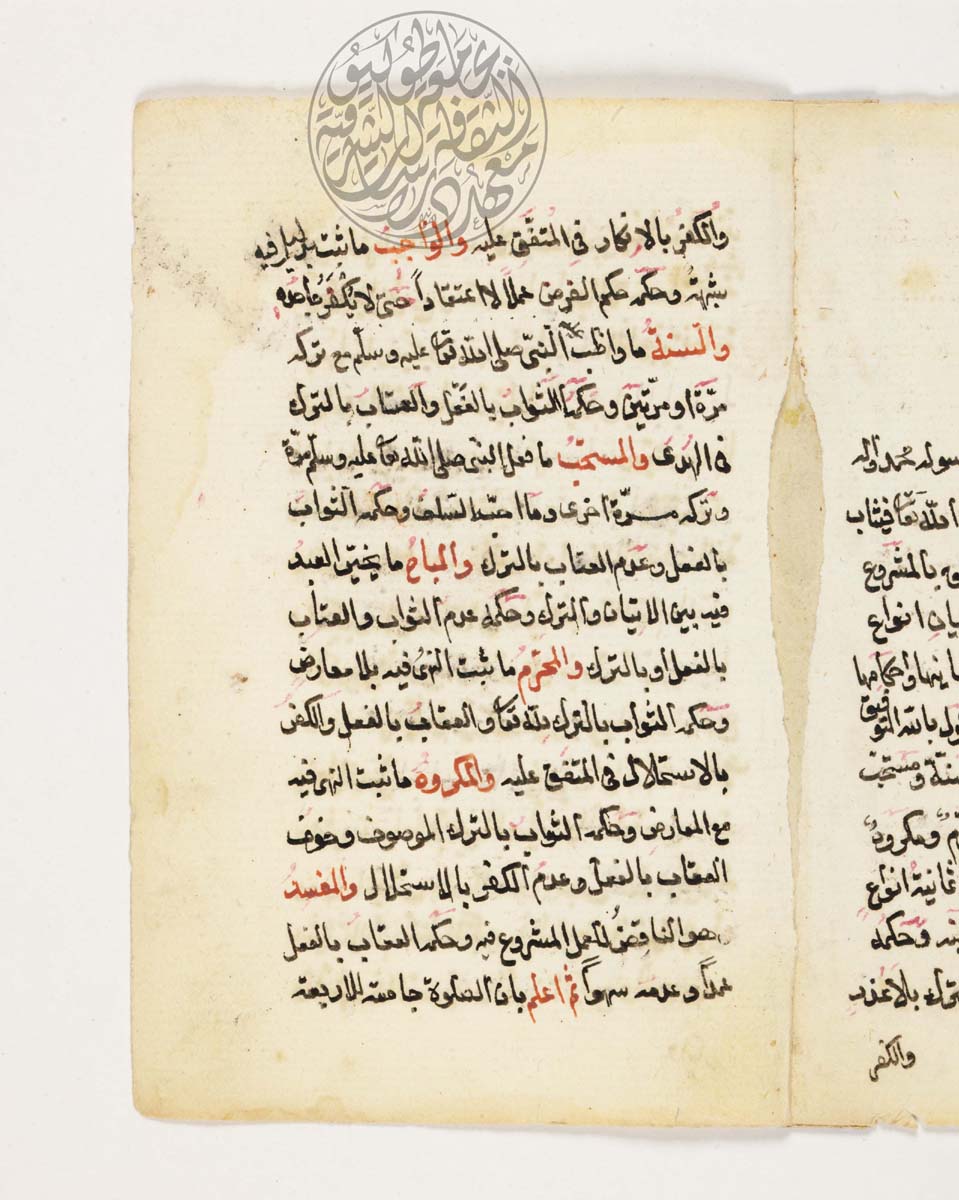 سوله محمد وآله
الله تعا فيثاب
به بالمشروع
يان انواع
ما ينها واحكامها
ول بالله التوفيق
سنة ومستحب
م ومكروه
ثمانية انواع
وحكمه
ترك بلا عذر
والكفر
والكفر بالانكار فى المتفق عليه والواجب ما ثبت بدليل فيه
شبهة وحكمه حكم الفرض عملا لا اعتقاداً حتى لا يكفر جاحده
والسنة ما واظب النبى صلى الله تعا عليه وسلم مع تركه
مرّة او مرّتين وحكمها الثواب بالفعل والعتاب بالترك
فى الهدى والمستحبّ ما فعل النبى صلى الله تعا عليه وسلم مرّة
وتركه مرّة اخرى وما احبه السلف وحكمه الثواب
بالفعل وعدم العتاب بالترك والمباح ما يخير العبد
فيه بين الاتيان والترك وحكمه عدم الثواب والعتاب
بالفعل او بالترك والمحرم ما ثبت النهى فيه بلا معارض
وحكمه الثواب بالترك لله تعا والعقاب بالفعل والكفر
بالاستحلال فى المتفق عليه والمكروه ما ثبت النهى فيه
مع المعارض وحكمه الثواب بالترك الموصوف وخوف
العقاب بالفعل وعدم الكفر بالاستحلال والمفسد
هو الناقض للعمل المشروع فيه وحكمه العقاب بالفعل
عمداً وعدمه سهواً ثم اعلم بان الصلوة جامعة للاربعة